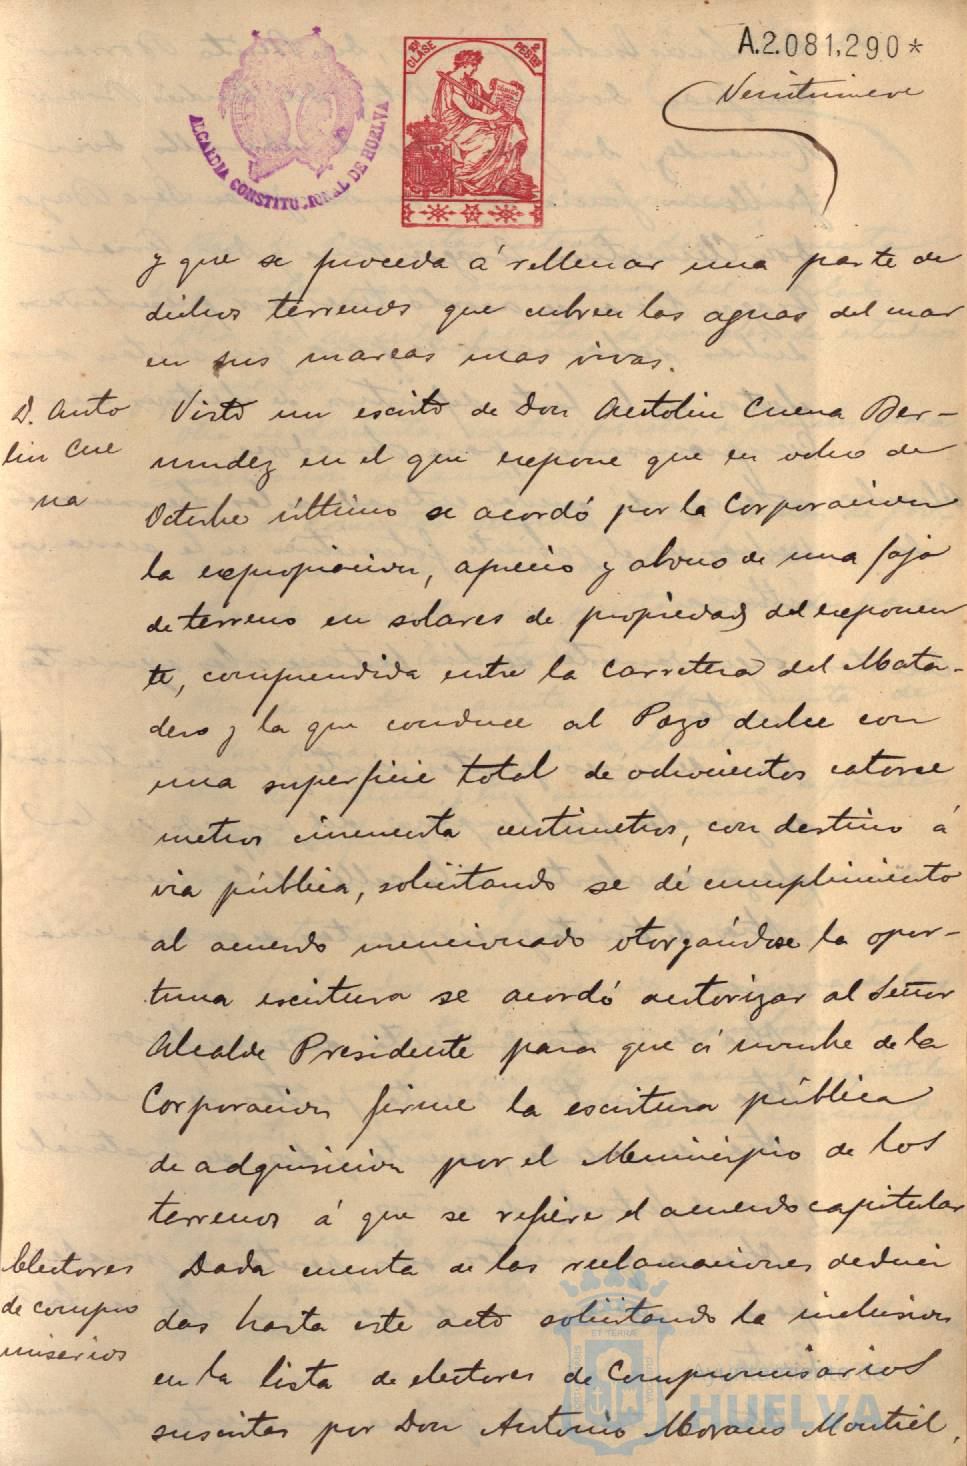 A.2.081,290*
Veintinueve
ALCALDIA CONSTITUCIONAL DE HUELVA
10ª CLASE
2 PESETAS
y que se proceda á rellenar una parte de
dichos terrenos que cubren las aguas del mar
en sus mareas mas vivas.
D. Anto
lin Cue
na
Visto un escrito de Don Antolin Cuena Ber-
mudez en el que expone que en ocho de
Octubre último se acordó por la Corporacion
la expropiacion, aprecio y abono de una faja
de terreno en solares de propiedad del exponen
te, comprendida entre la Carretera del Mata-
dero y la que conduce al Pozo dulce con
una superficie total de ochocientos catorce
metros cincuenta centimetros, con destino á
via pública, solicitando se dé cumplimiento
al acuerdo mencionado otorgándose la opor-
tuna escritura se acordó autorizar al Señor
Alcalde Presidente para que á nombre de la
Corporacion firme la escritura pública
de adquisicion por el Municipio de los
terrenos á que se refiere el acuerdo capitular
Electores
de compro
misarios
Dada cuenta de las reclamaciones deduci
das hasta este acto solicitando la inclusion
en la lista de electores de Compromisarios
suscritas por Don Antonio Morano Montiel,
Ayuntamiento de
HUELVA